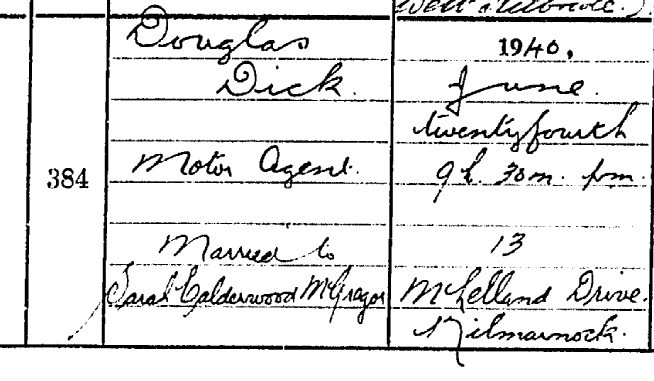 Douglas
Dick.
Motor Agent.
384
Married to
Sarah Calderwood McGregor
1940,
June
twentyfourth
9h. 30m. pm.
13
McLelland Drive.
Kilmarnock.